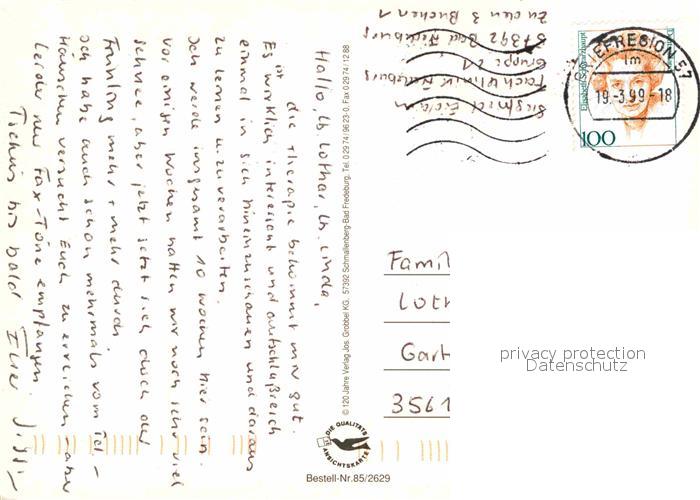 Hallo, lb. Lothar, lb. Linda,
die Therapie bekommt mir gut.
Es ist wirklich interessant und aufschlußreich
einmal in sich hineinzuschauen und daraus
zu lernen u. zu verarbeiten.
Ich werde insgesamt 10 Wochen hier sein.
Vor einigen Wochen hatten wir noch sehr viel
Schnee, aber jetzt setzt sich doch der
Frühling mehr + mehr durch.
Ich habe auch schon mehrmals vom Tel.-
Häuschen versucht Euch zu erreichen - aber
leider nur Fax-Töne empfangen.
Tschüss bis bald Euer
© 120 Jahre Verlag Jos. Grobbel KG, 57392 Schmallenberg-Bad Fredeburg, Tel. 0 29 74 / 96 23-0, Fax 0 29 74 / 12 88
Siegfried
Fachklinik Fredeburg
Gruppe 21
57392 Bad Fredeburg
Zu den 3 Buchen 1
Elisabeth Schwarzhaupt
100
BRIEFREGION 57
1m
19.-3.99-18
Famil
Loth
Gart
3561
privacy protection
Datenschutz
DIE QUALITÄTS
ANSICHTSKARTE
Bestell-Nr. 85/2629